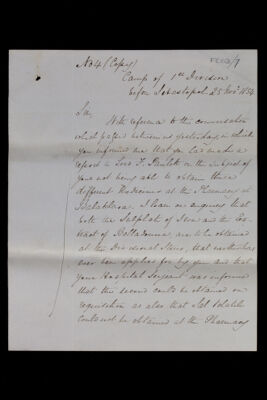 No 4 (Copy)
Camp of 1st Division
before Sebastopol 25 Novr 1854
Sir,
With reference to the conversation
which passed between us yesterday, in which
you informed me that you had made a
report to on the subject of
your not being able to obtain three
different Medicines at the Pharmacy at
Balaklava. I learn on enquiry that
both the Sulphate of and the
Extract of Belladonna are to be obtained
at the Divisional Store, that neither has
ever been applied for by you and that
your Hospital Sergeant was informed
that the second could be obtained on
requisition as also that Sal Volatile
could not be obtained at the Pharmacy